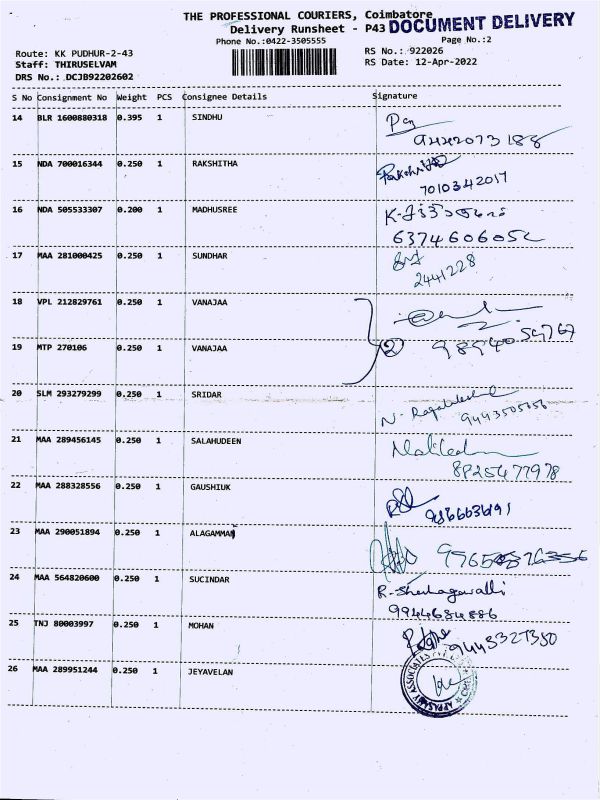 THE PROFESSIONAL COURIERS, Coimbatore
Delivery Runsheet - P43 DOCUMENT DELIVERY
Phone No.:0422-3505555 Page No.:2
Route: KK PUDHUR-2-43 RS No.: 922026
Staff: THIRUSELVAM RS Date: 12-Apr-2022
DRS No.: DCJB92202602
S No Consignment No Weight PCS Consignee Details Signature
14 BLR 1600880318 0.395 1 SINDHU
15 NDA 700016344 0.250 1 RAKSHITHA
7010342017
16 NDA 505533307 0.200 1 MADHUSREE
637460605
17 MAA 281000425 0.250 1 SUNDHAR
2441228
18 VPL 212829761 0.250 1 VANAJAA
19 MTP 270106 0.250 1 VANAJAA
2
20 SLM 293279299 0.250 1 SRIDAR
21 MAA 289456145 0.250 1 SALAHUDEEN
8925477978
22 MAA 288328556 0.250 1 GAUSHIUK
23 MAA 290051894 0.250 1 ALAGAMMAN
24 MAA 564820600 0.250 1 SUCINDAR
9944684886
25 TNJ 80003997 0.250 1 MOHAN
9443327380
26 MAA 289951244 0.250 1 JEYAVELAN
APPASAMY ASSOCIATES